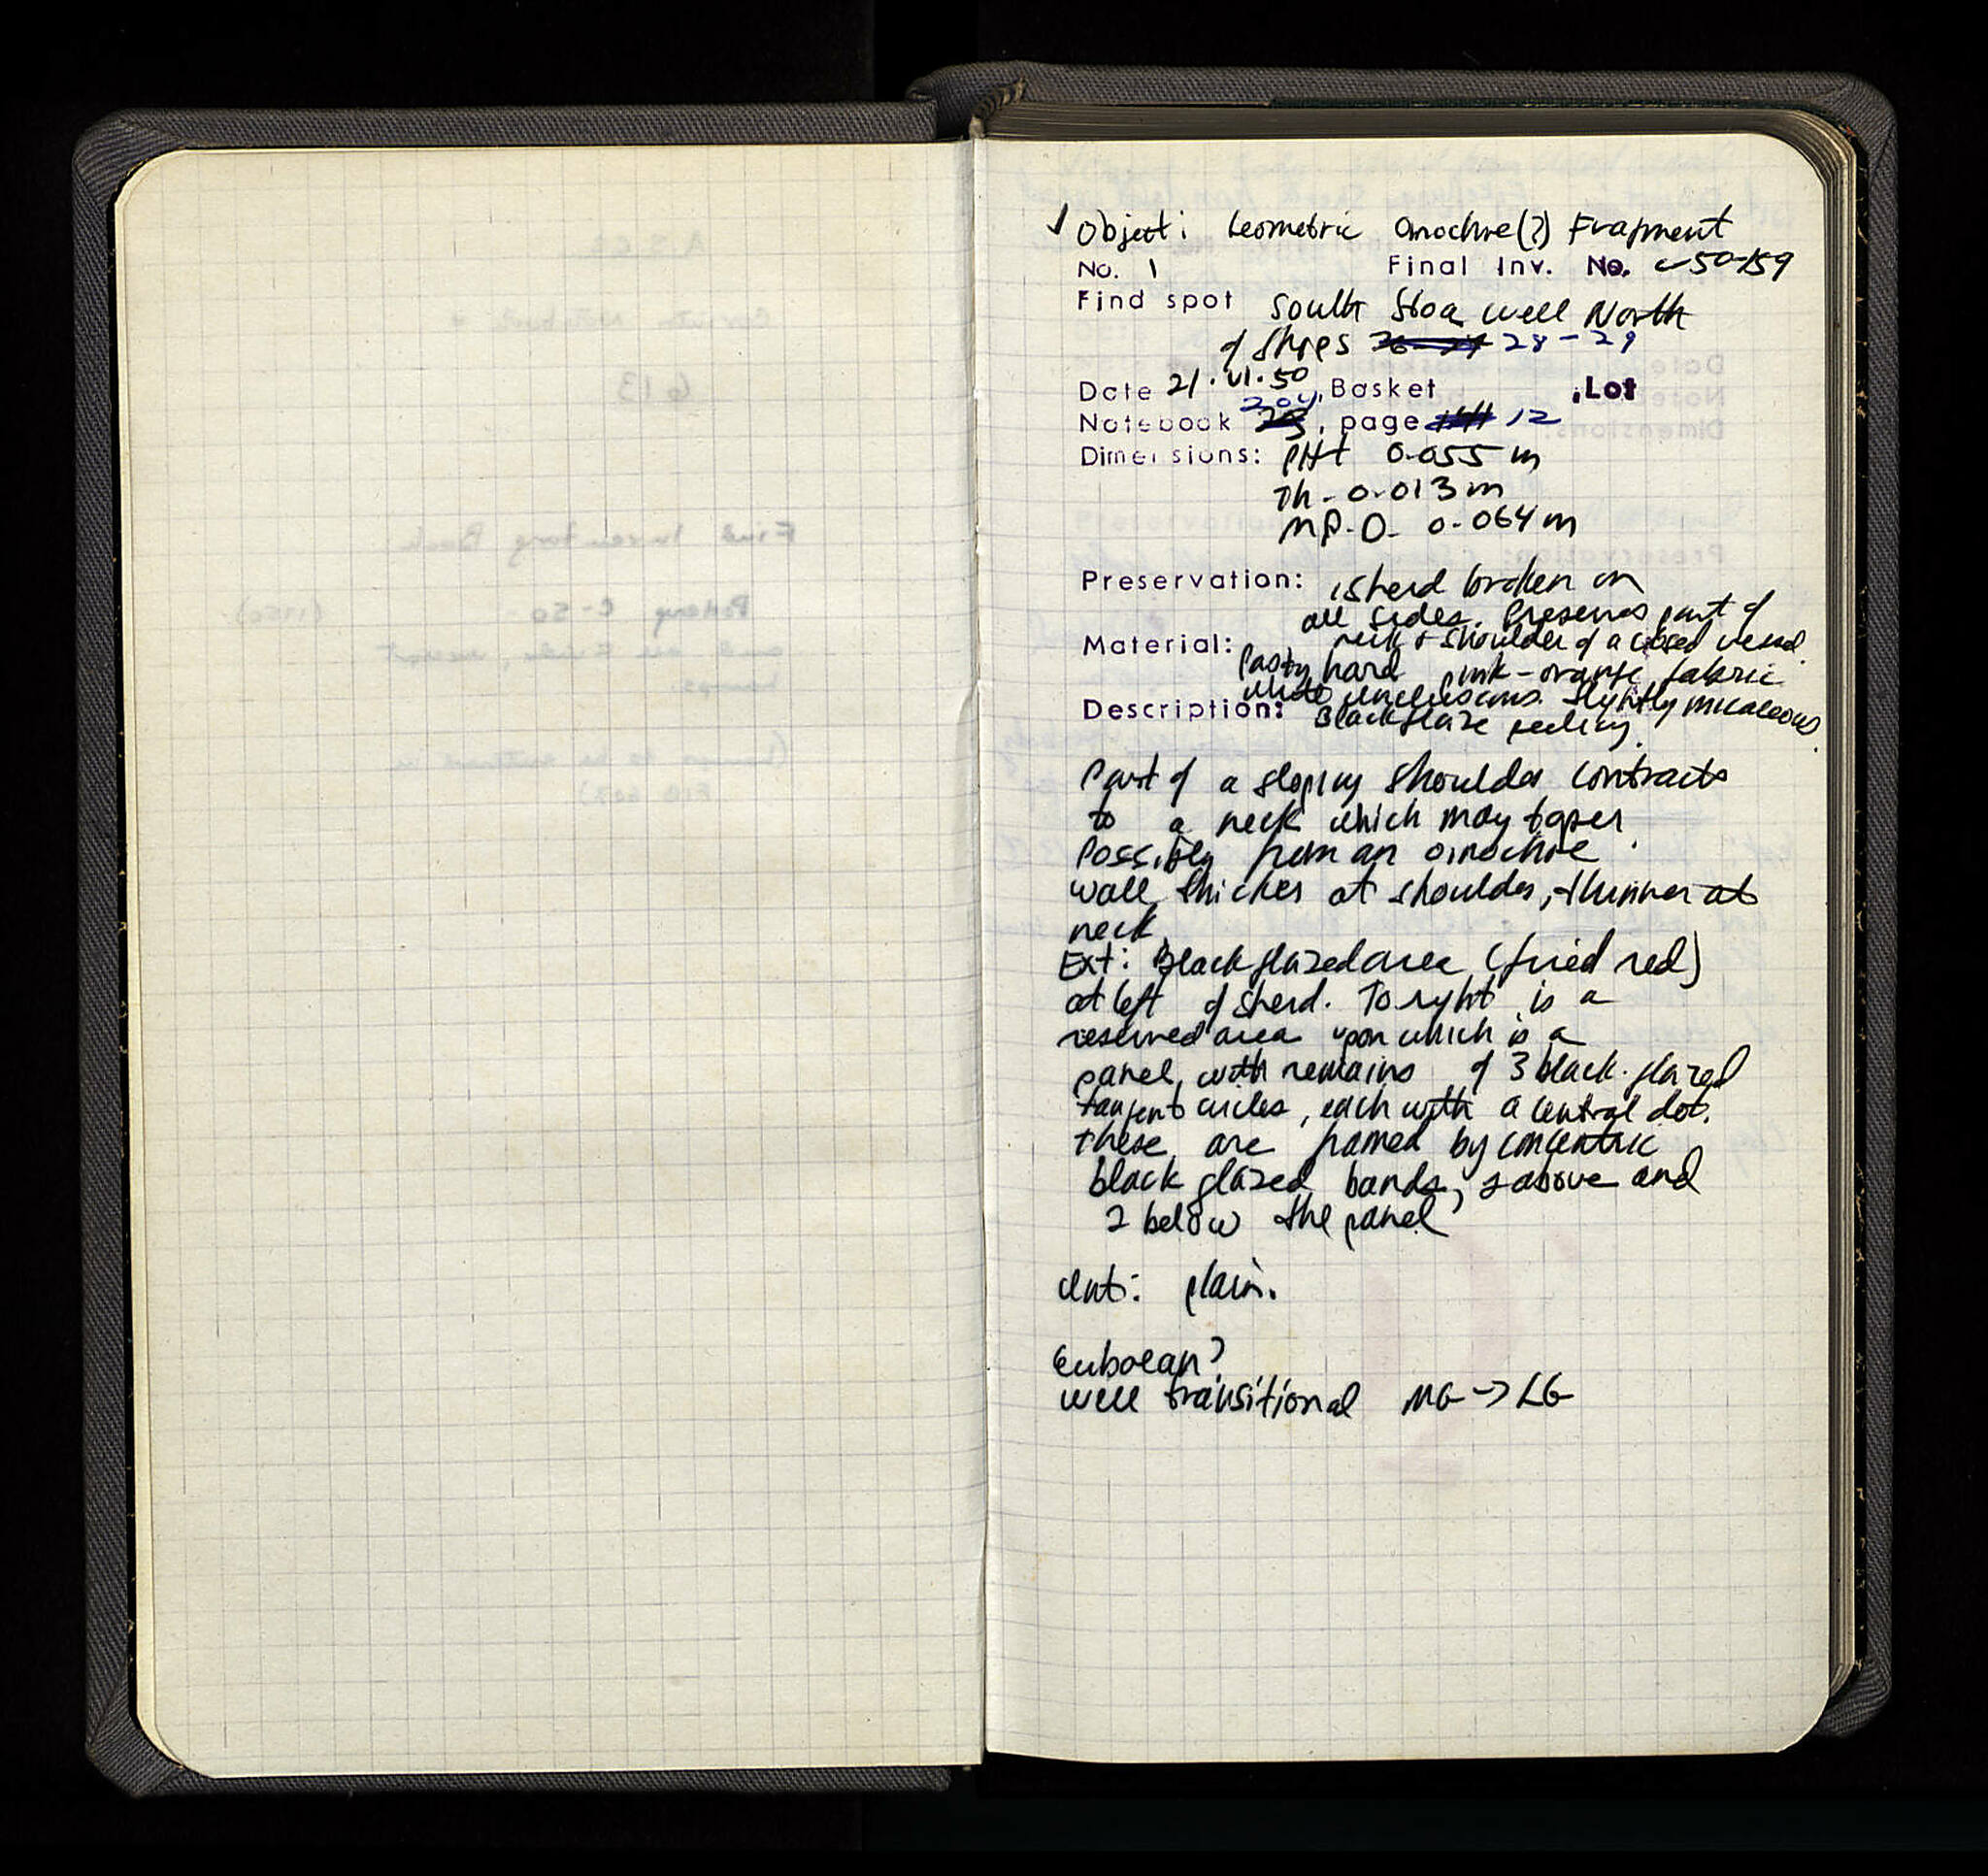 ✓ Object: Geometric Oinochoe(?) Fragment
No. 1 Final Inv. No. C-50-159
Find spot South Stoa well North
of Shops 28-29
Date 21.VI.50, Basket , Lot
Notebook 204, page 12
Dimensions: PHt 0.055 m
Th - 0.013 m
M.P.D. 0.064 m
Preservation: 1 sherd broken on
all sides. Preserves part of
neck + shoulder of a closed vessel.
Material: Pasty, hard pink-orange fabric
white inclusions. Slightly micaceous
Description: Black glaze peeling.
Part of a sloping shoulder contracts
to a neck which may taper.
Possibly from an oinochoe.
wall thicker at shoulder, thinner at
neck
Ext: Black glazed area (fired red)
at left of sherd. To right is a
reserved area upon which is a
panel, with remains of 3 black-glazed
tangent circles, each with a central dot.
these are framed by concentric
black glazed bands, above and
2 below the panel
Int: plain.
Euboean?
well transitional MG → LG